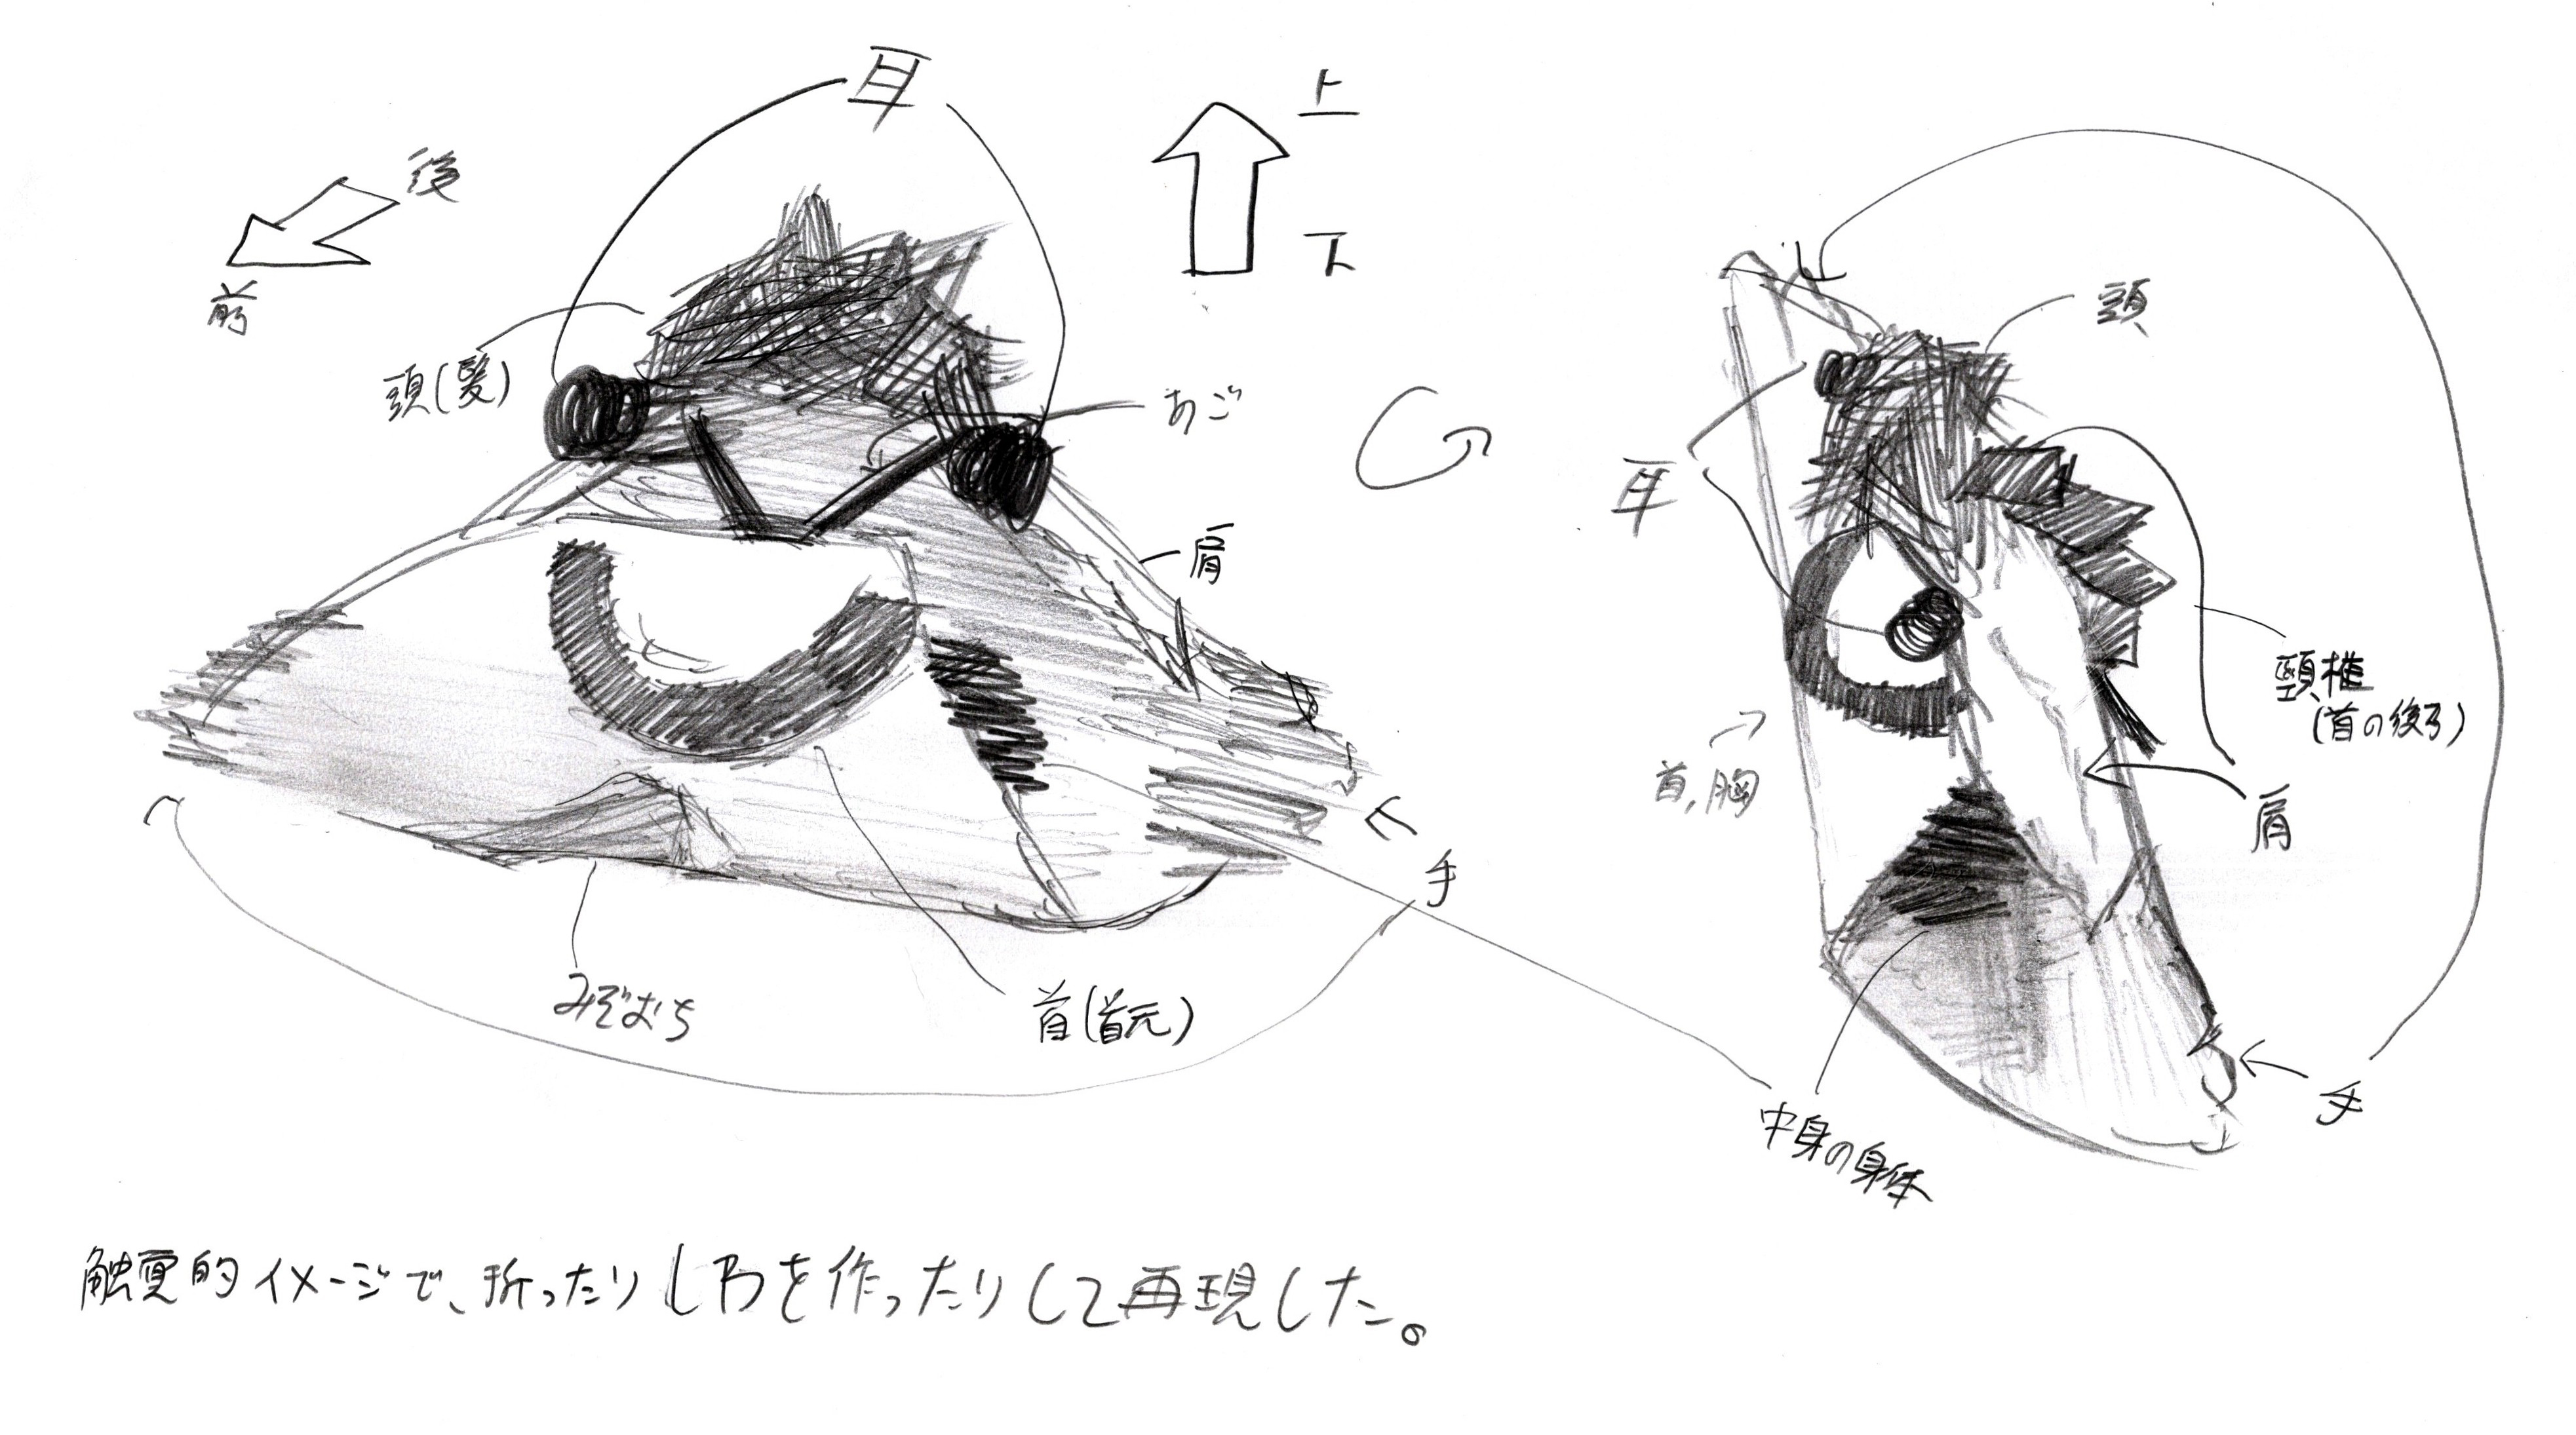 耳
上
後
下
前
頭(髪)
あご
肩
手
みぞおち
首(首元)
頭
耳
頸椎
(首の後ろ)
首,胸
肩
手
中身の身体
触覚的イメージで、折ったりしわを作ったりして再現した。